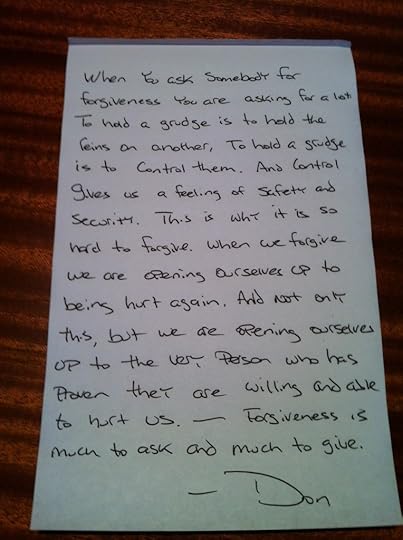 When You ask Somebody for
forgiveness You are asking for a lot.
To hold a grudge is to hold the
reins on another. To hold a grudge
is to control them. And control
gives us a feeling of safety and
security. This is why it is so
hard to forgive. When we forgive
we are opening ourselves up to
being hurt again. And not only
this, but we are opening ourselves
up to the very Person who has
Proven they are willing and able
to hurt us. — Forgiveness is
much to ask and much to give.
— Don